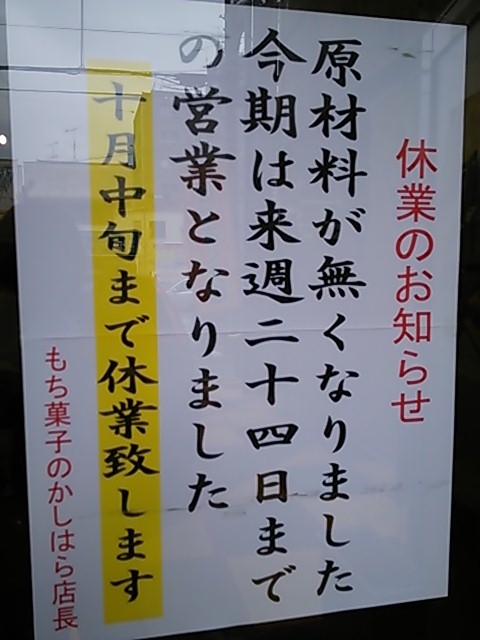 休業のお知らせ
原材料が無くなりました
今期は来週二十四日まで
の営業となりました
十月中旬まで休業致します
もち菓子のかしはら店長